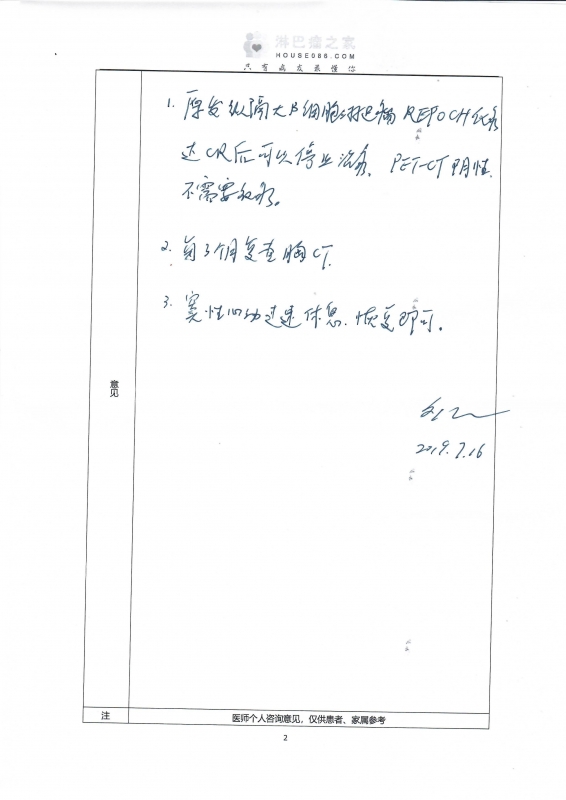 淋巴瘤之家
HOUSE086.COM
只有病友最懂你
1. 原发纵隔大B细胞淋巴瘤 REPOCH化疗
达CR后可以停止治疗. PET-CT阴性
不需要放疗。
2. 每3个月复查胸CT.
3. 窦性心动过速休息. 恢复即可。
意见
2019.7.16
注
医师个人咨询意见，仅供患者、家属参考
2